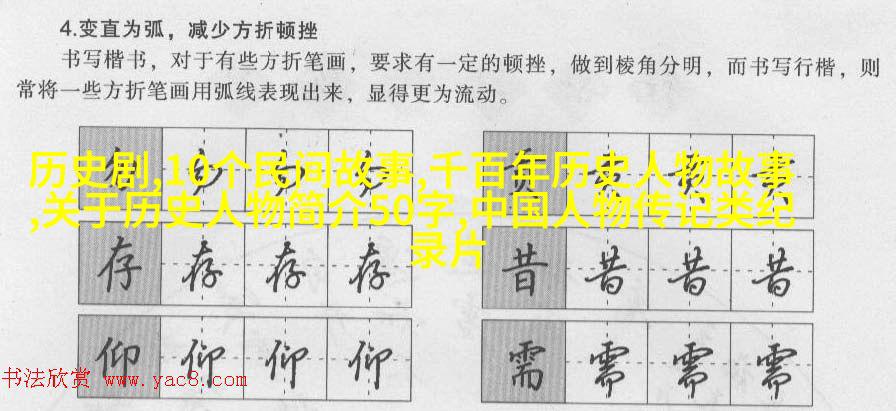 4.变直为弧，减少方折顿挫
书写楷书，对于有些方折笔画，要求有一定的顿挫，做到棱角分明，而书写行楷，则
常将一些方折笔画用弧线表现出来，显得更为流动。
历史剧,10个民间故事,千百年历史人物故事
,关于历史人物简介50字,中国人物传记类纪
录片
存 存 存 存
昔 昔 昔 昔
仰 仰 仰 仰
需 需 需 需
书法欣赏 www.yac8.com